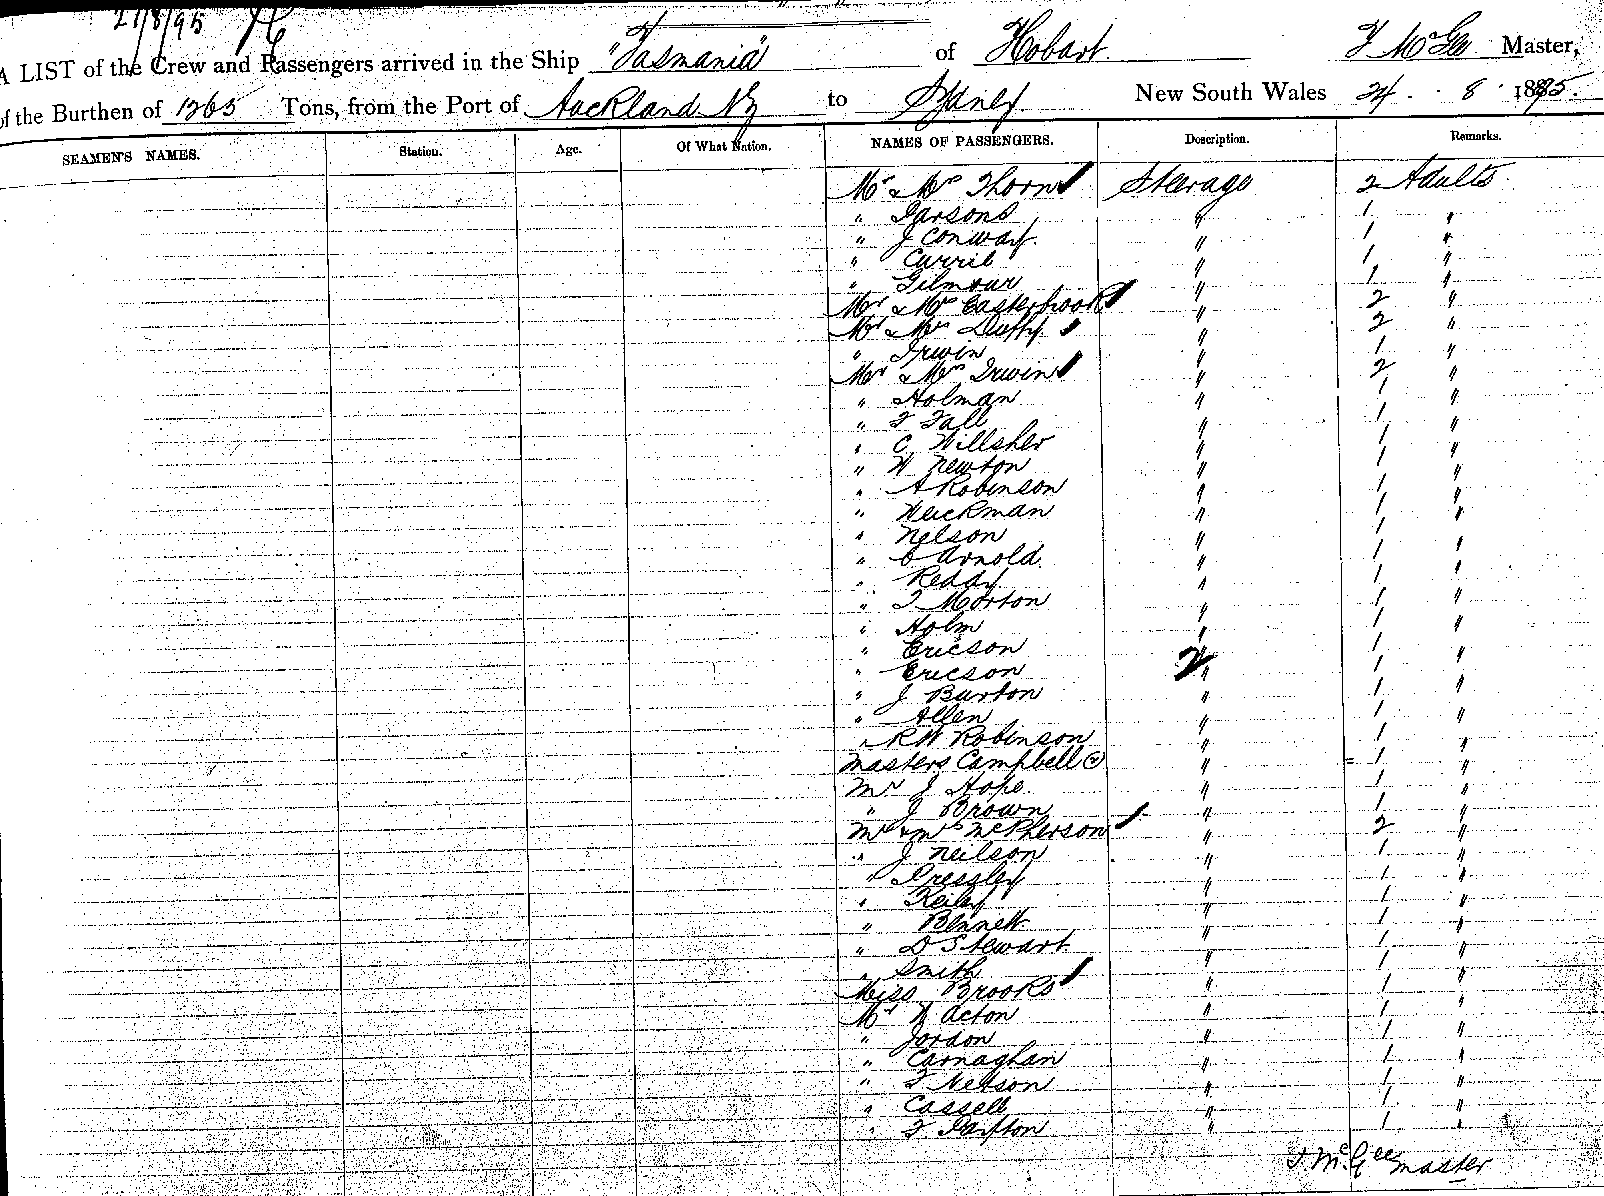 21/8/95
A LIST of the Crew and Passengers arrived in the Ship "Tasmania" of Hobart. T McGee Master,
of the Burthen of 1265 Tons, from the Port of Auckland NZ to Sydney New South Wales 24. 8. 1895.
SEAMEN'S NAMES. Station. Age. Of What Nation. NAMES OF PASSENGERS. Description. Remarks.
Mr & Mrs Thorn Steerage 2 Adults
" Parsons " 1 "
" J Conway " 1 "
" Currie " 1 "
" Gilmour " 1 "
Mr & Mrs Easterbrook " 2 "
Mr & Mrs Duffy " 2 "
" Irwin " 1 "
Mr & Mrs Irwin " 2 "
" Holman " 1 "
" T Fall " 1 "
" C Willsher " 1 "
" W Newton " 1 "
" A Robinson " 1 "
" Weickman " 1 "
" Nelson " 1 "
" C Arnold " 1 "
" Reddy " 1 "
" T Morton " 1 "
" Holm " 1 "
" Ericson " 1 "
" Ericson 2 " 1 "
" J Burton " 1 "
" Allen " 1 "
" RW Robinson " 1 "
Masters Campbell (2) " = 1 "
Mr J Hope " 1 "
" J Brown " 1 "
Mr & Mrs McPherson " 2 "
" J Neilson " 1 "
" Pressley " 1 "
" Reiley " 1 "
" Bennett " 1 "
" D Stewart " 1 "
" Smith " 1 "
Miss Brooks " 1 "
Mr W Acton " 1 "
" Jordon " 1 "
" Carnaghan " 1 "
" T Nelson " 1 "
" Cassell " 1 "
" T. " 1 "
T McGee master